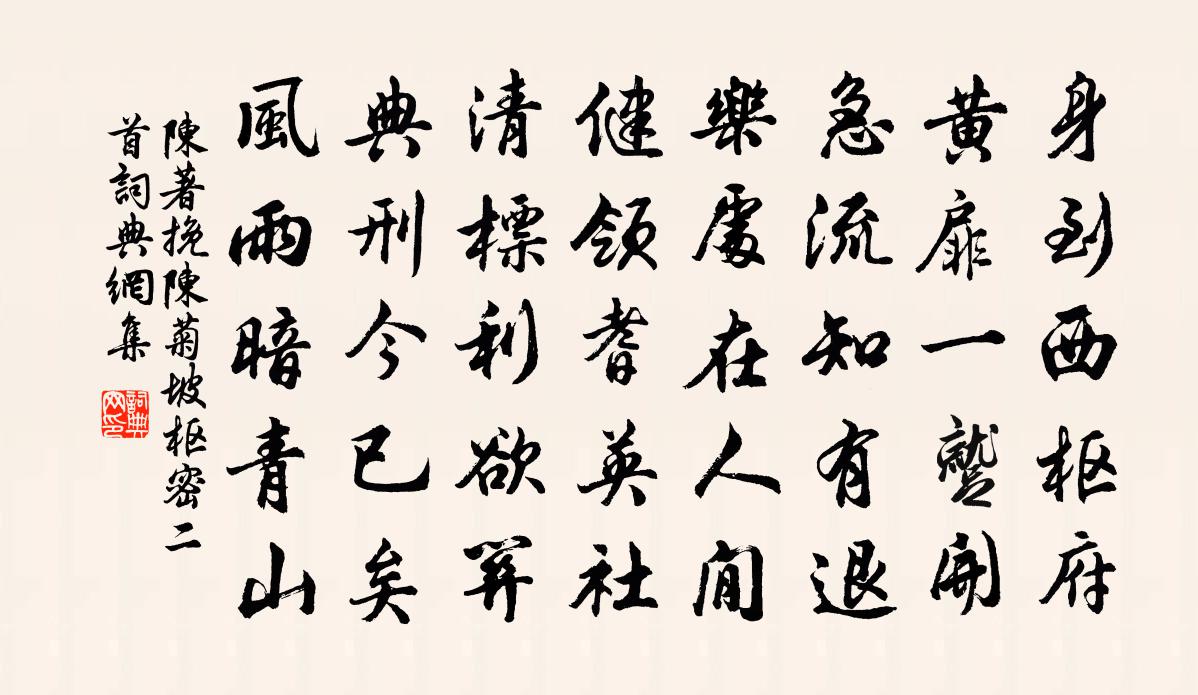 身到西枢府
黄扉一開
急流知有退
樂處在人間
健領耆英社
清標利欲關
典刑今已矣
風雨暗青山
陳著挽陳菊坡枢密二
首詞典網集
詞典網印